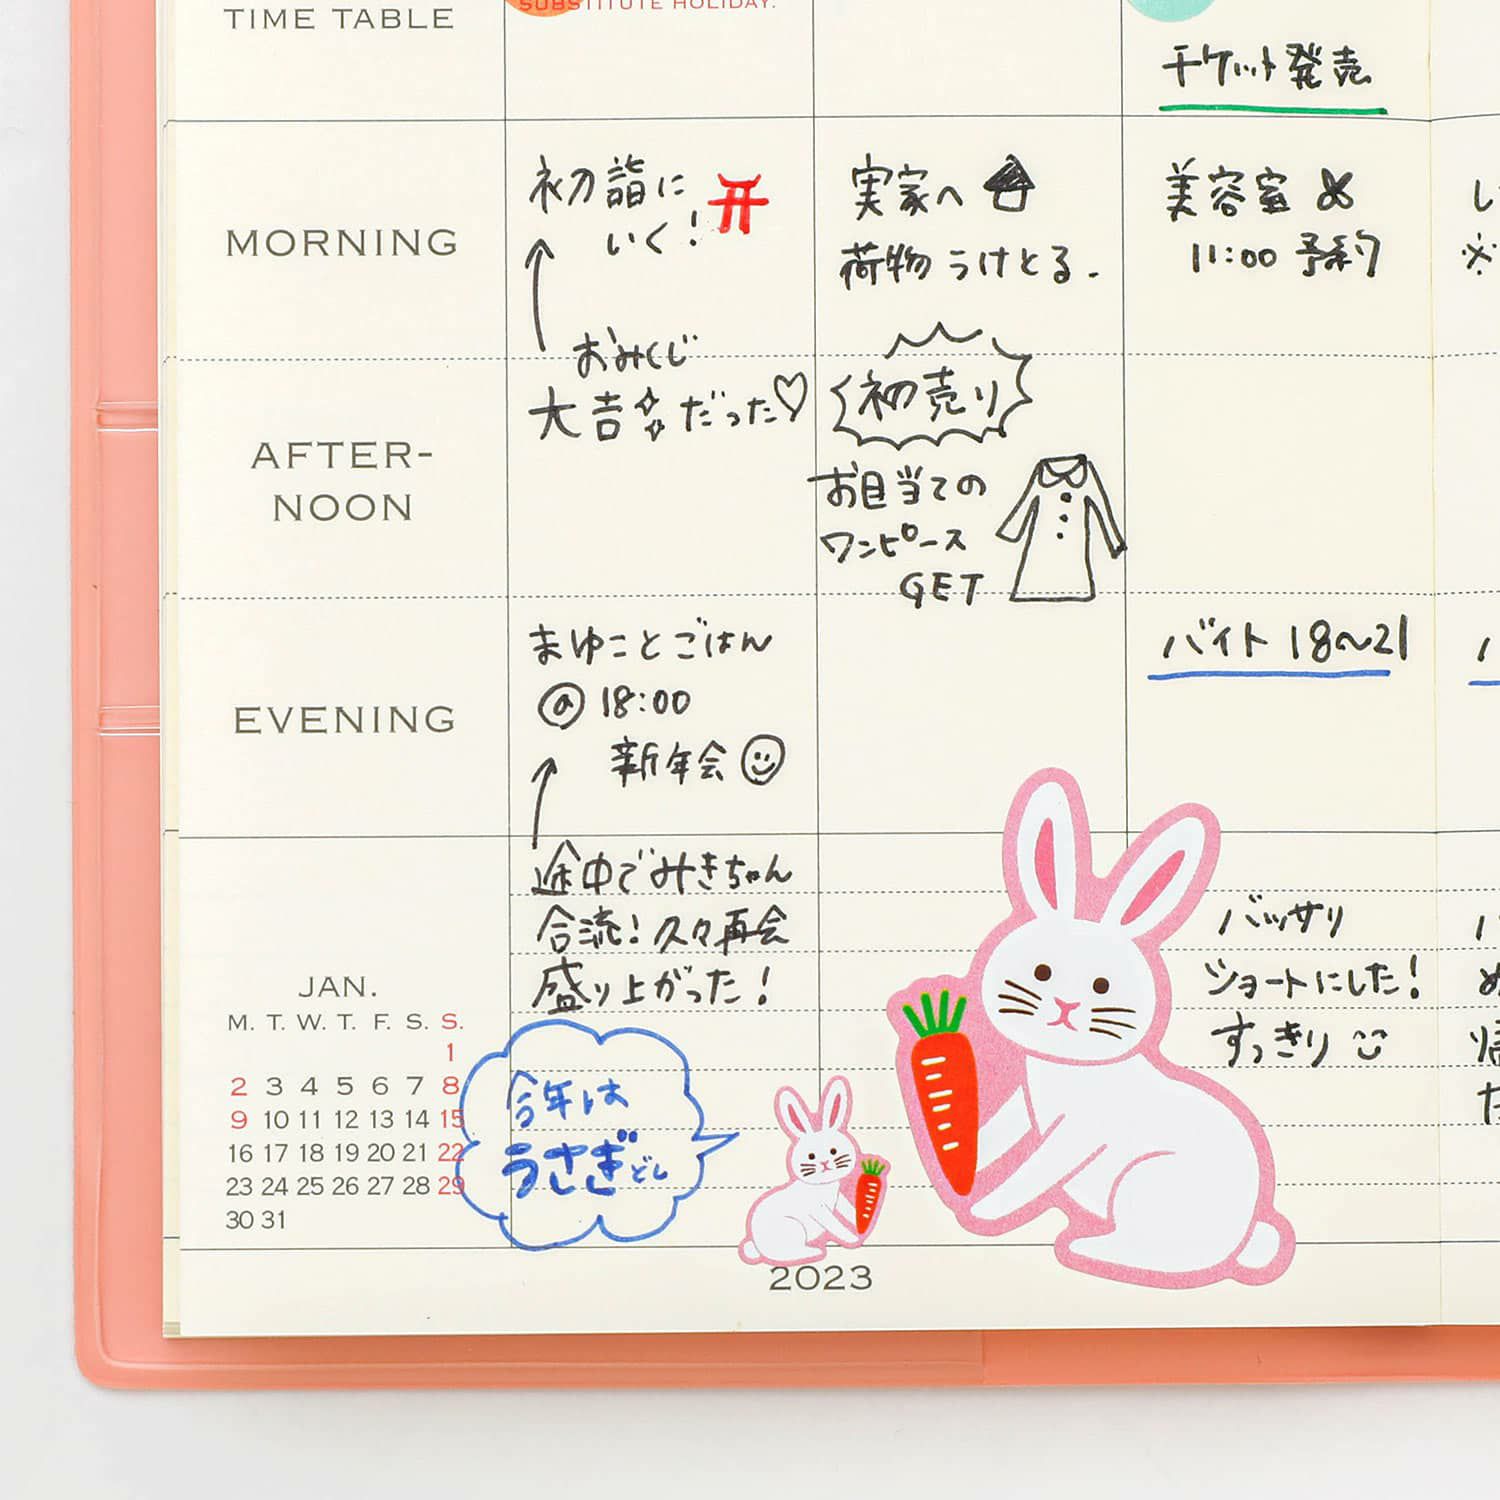 TIME TABLE
SUBSTITUTE HOLIDAY.
チケット発売
MORNING
初詣に
いく!
おみくじ
大吉だった♡
実家へ
荷物うけとる.
美容室
11:00 予約
AFTER-
NOON
初売り
お目当ての
ワンピース
GET
EVENING
まゆことごはん
@ 18:00
新年会
バイト 18〜21
途中でみきちゃん
合流!久々再会
盛り上がった!
バッサリ
ショートにした!
すっきり
今年は
うさぎどし
JAN.
M. T. W. T. F. S. S.
1
2 3 4 5 6 7 8
9 10 11 12 13 14 15
16 17 18 19 20 21 22
23 24 25 26 27 28 29
30 31
2023